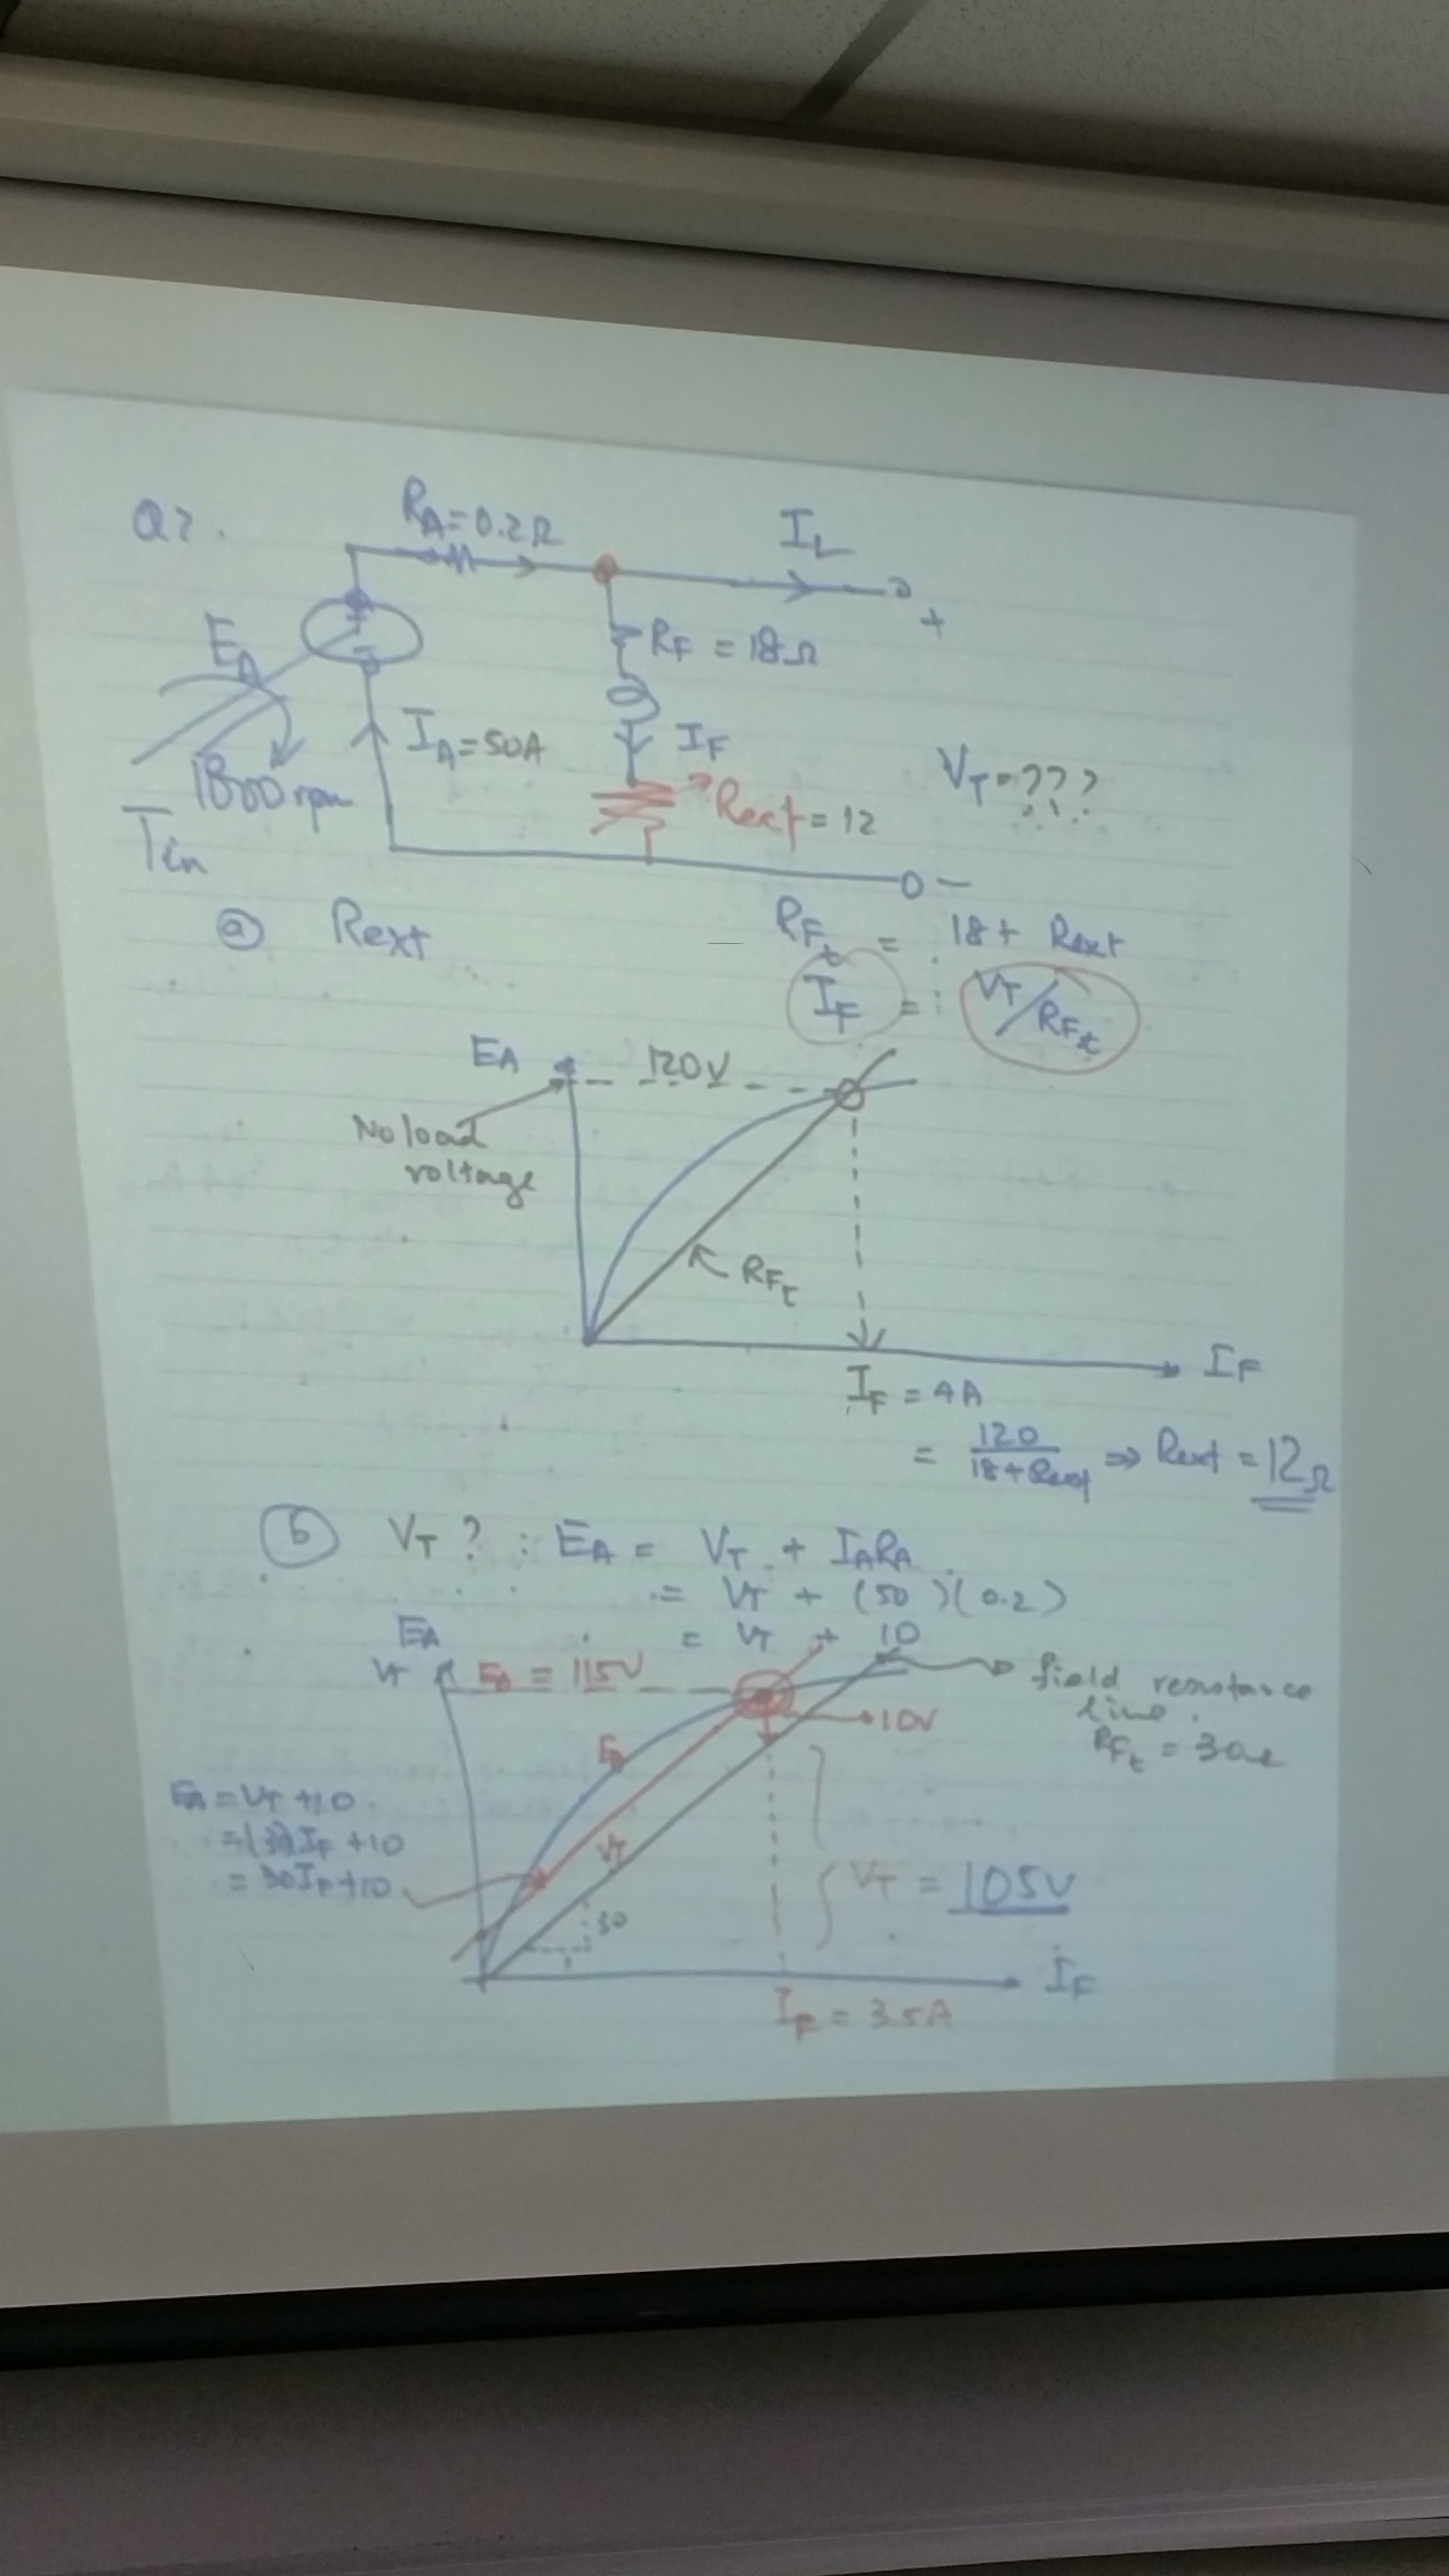 Q2.
RA=0.2Ω
IL
+
EA
RF = 18Ω
IA=50A
IF
1800 rpm
Rext = 12
VT = ???
Tin
−
ⓐ Rext
RFt = 18 + Rext
IF = VT/RFt
EA
120V
No load
voltage
RFt
IF
IF = 4A
= 120/18+Rext ⇒ Rext = 12Ω
ⓑ VT ? : EA = VT + IARA
= VT + (50)(0.2)
= VT + 10
EA
VT
EA = 115V
field resistance
line.
RFt = 30Ω
10V
EA
EA = VT + 10
= (30)IF + 10
= 30IF + 10
VT
VT = 105V
30
1
IF
IF = 3.5A